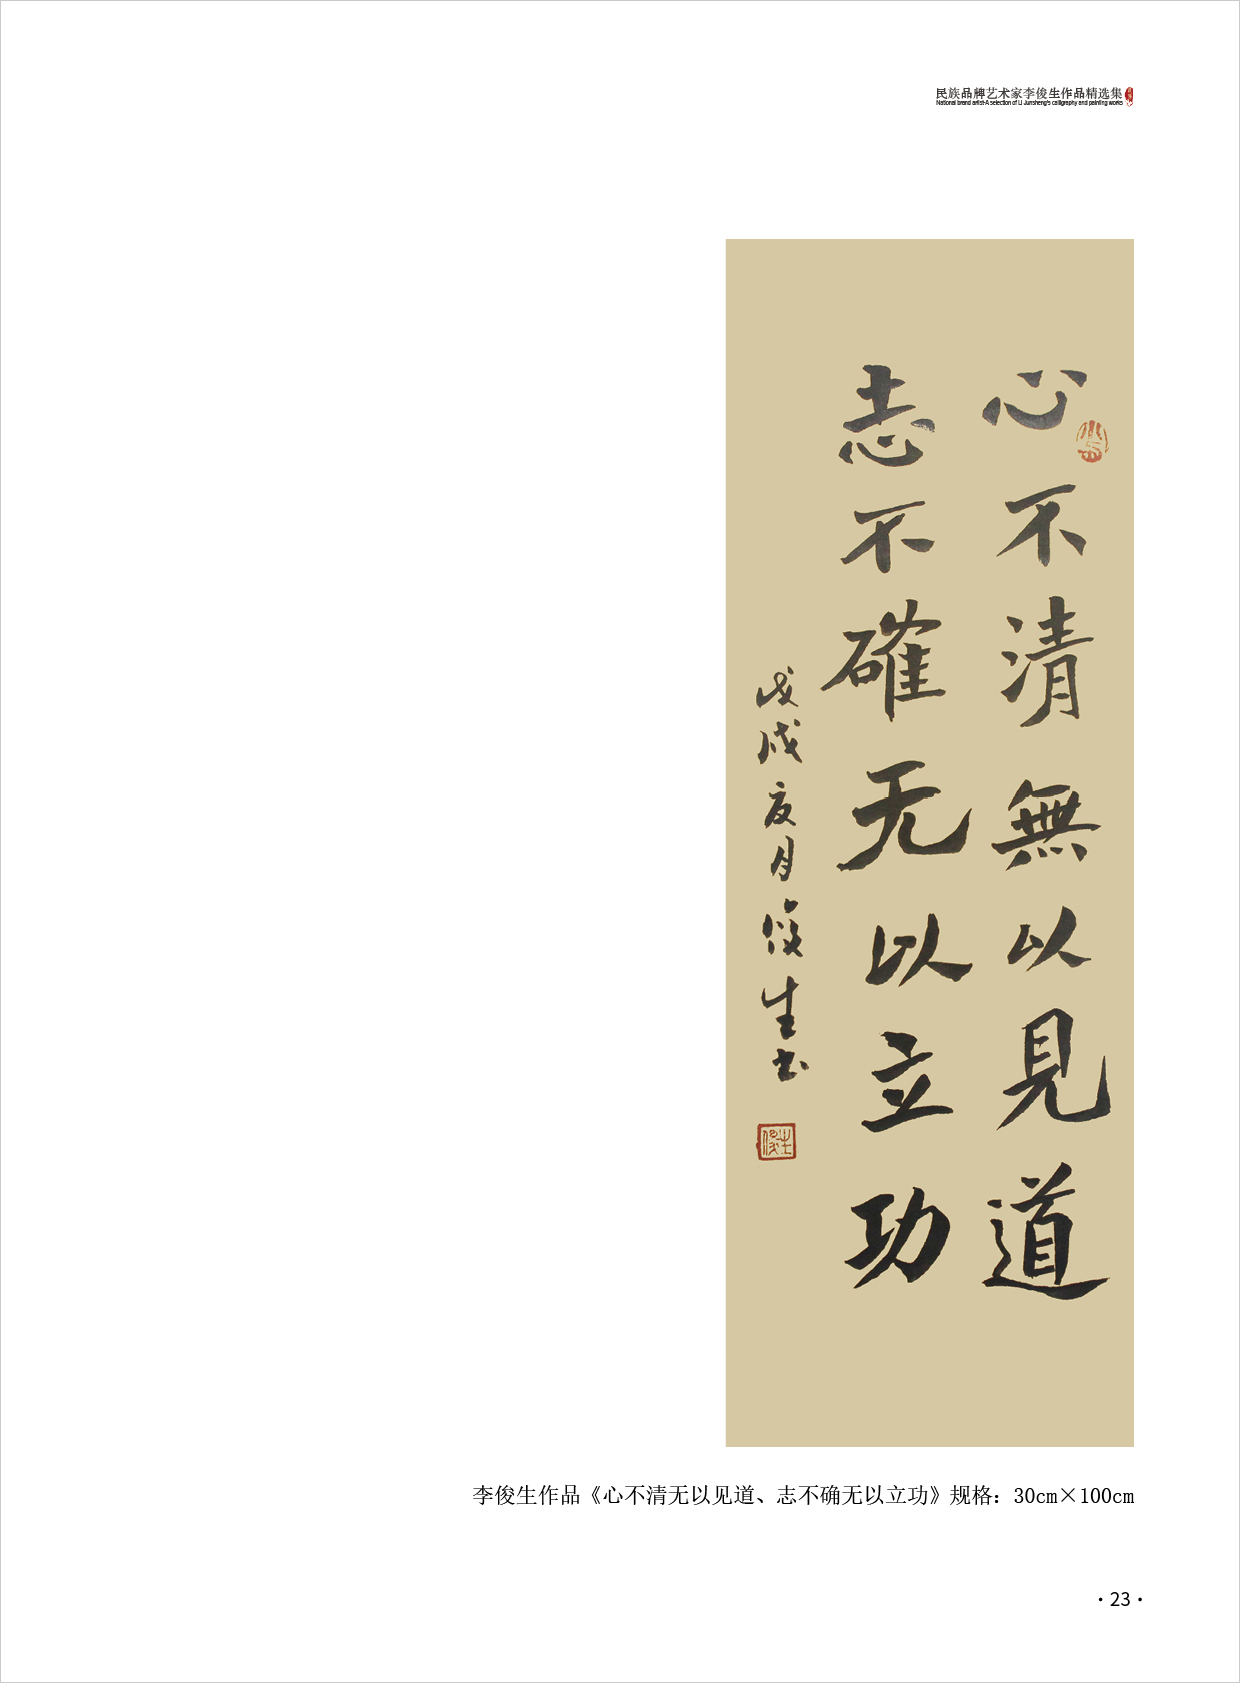 民族品牌艺术家李俊生作品精选集
National brand artist-A selection of Li Junsheng's calligraphy and painting works
心不清無以見道
志不確无以立功
戊戌夏月俊生书
李俊生作品《心不清无以见道、志不确无以立功》规格：30cm×100cm
·23·